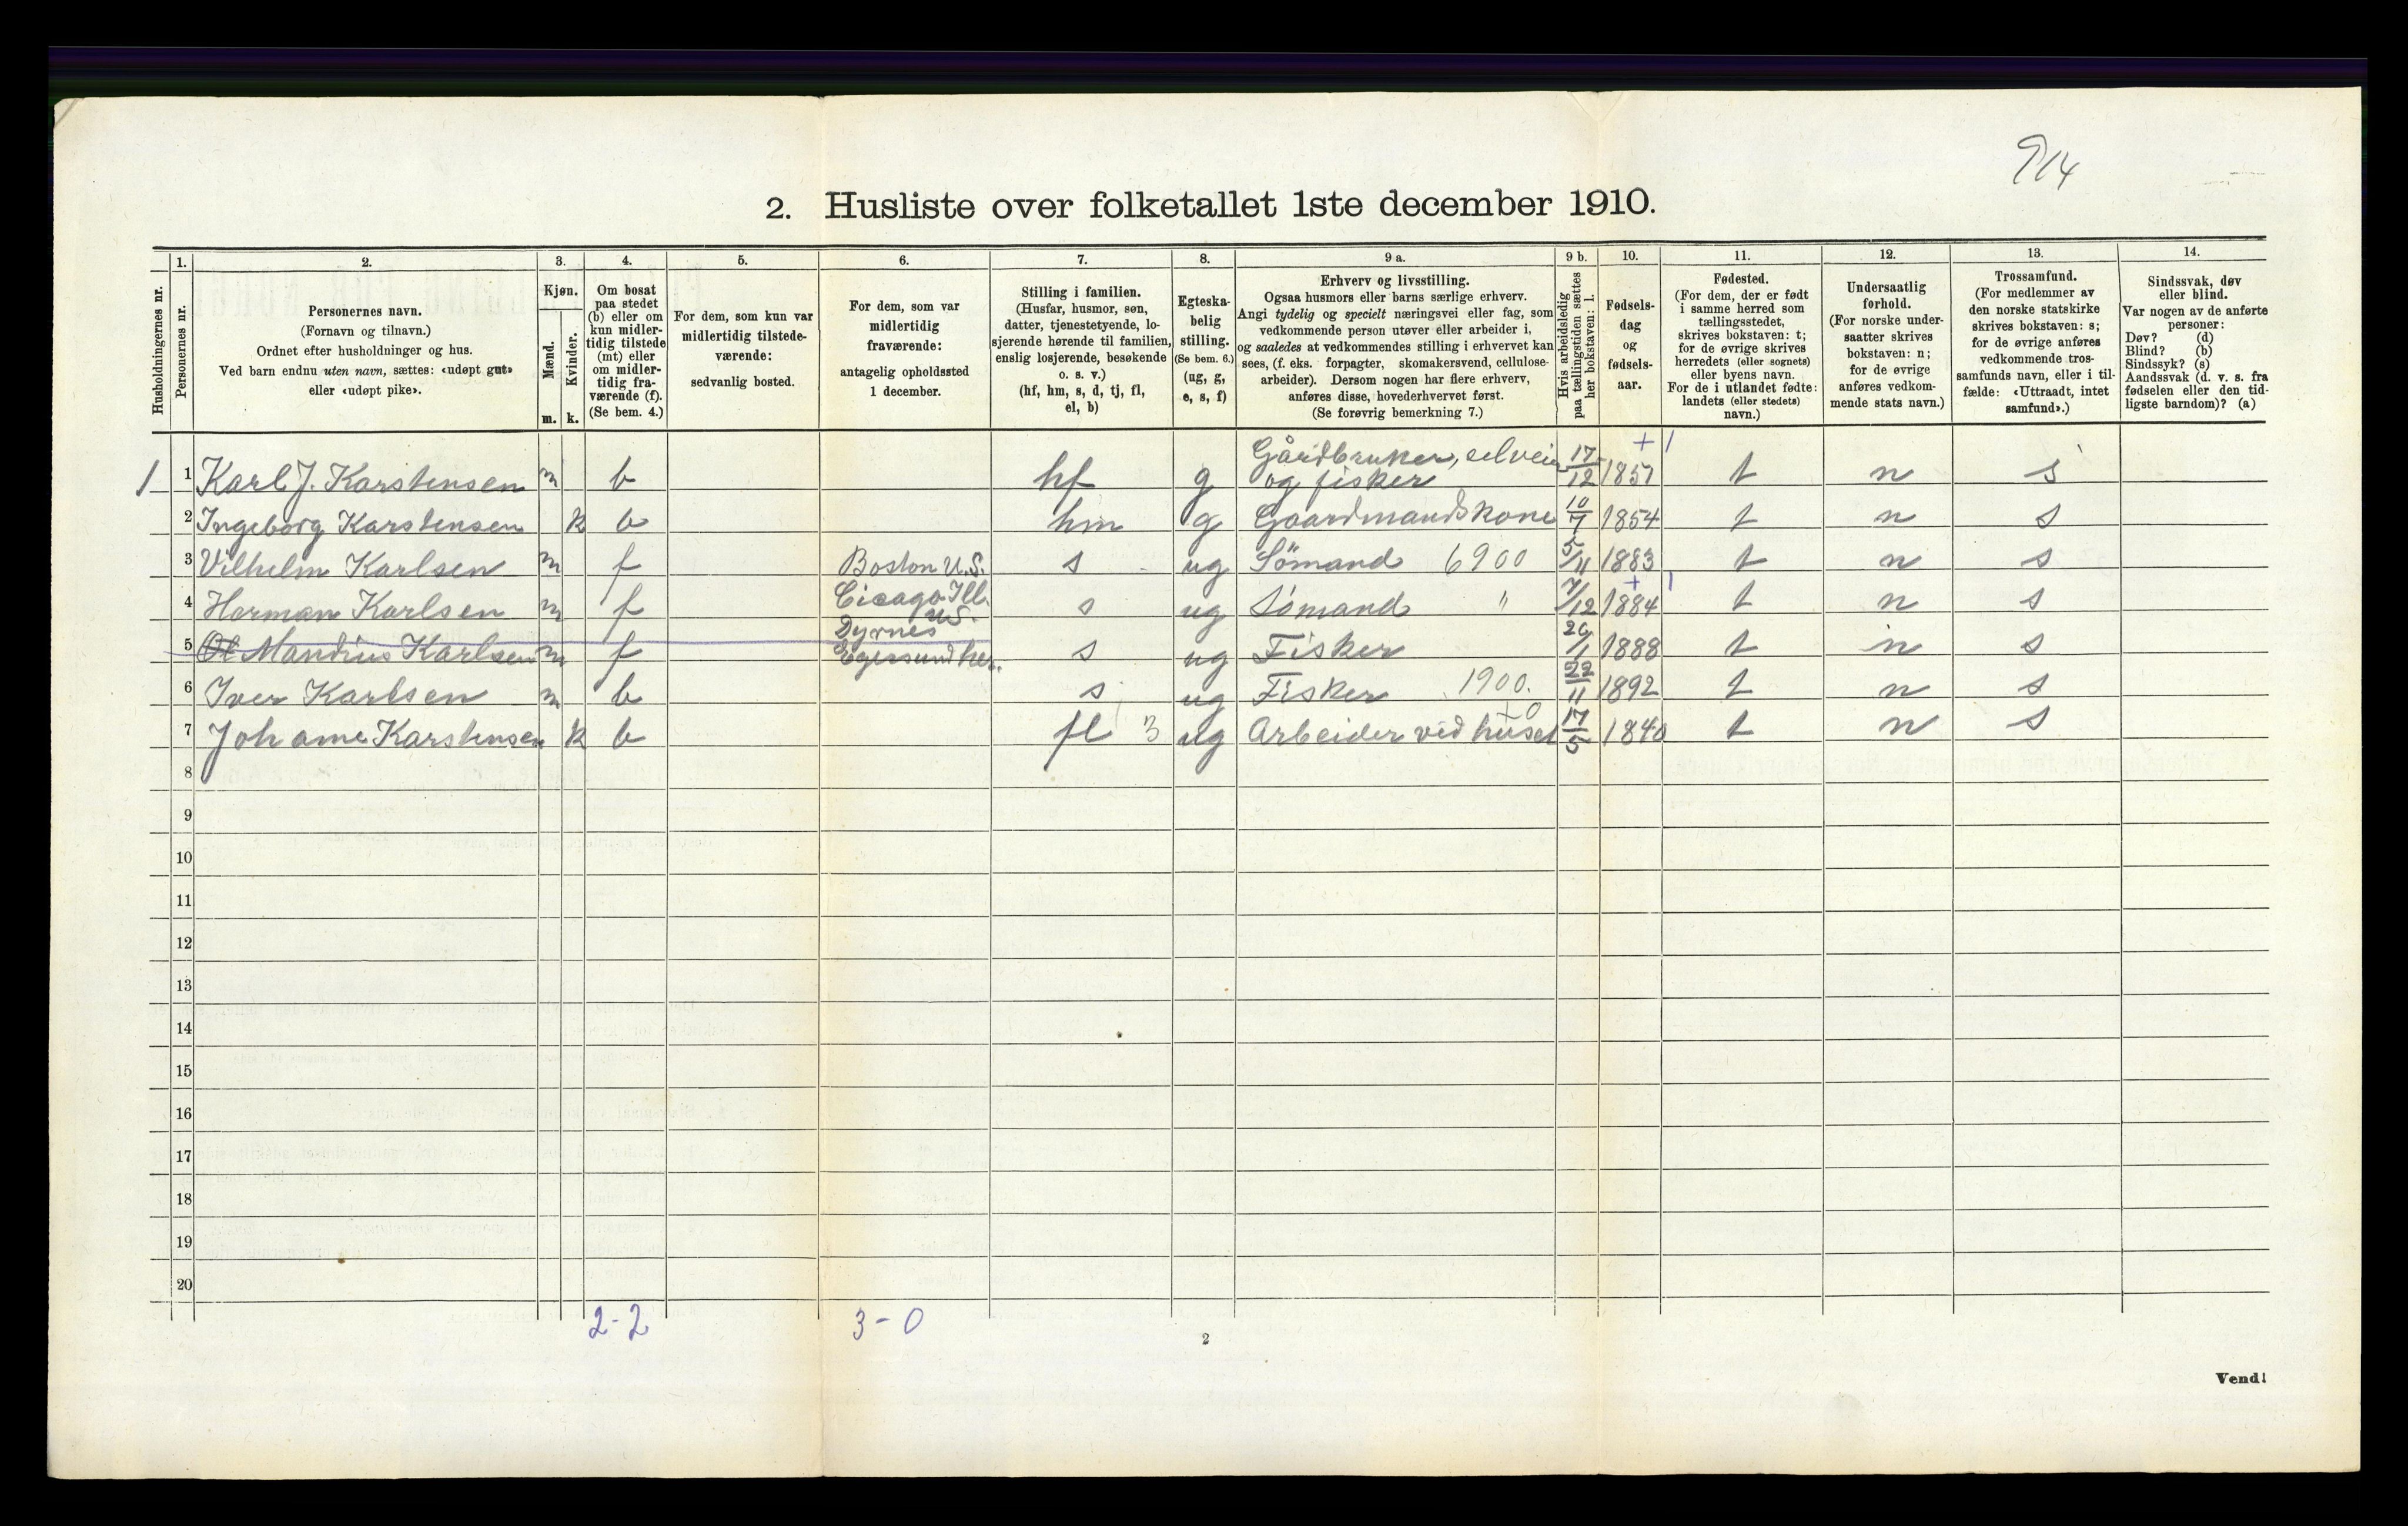 914
2. Husliste over folketallet 1ste december 1910.
Husholdningernes nr.
1.
Personernes nr.
2.
Personernes navn.
(Fornavn og tilnavn.)
Ordnet efter husholdninger og hus.
Ved barn endnu uten navn, sættes: «udøpt gut»
eller «udøpt pike».
3.
Kjøn.
Mænd.
m.
Kvinder.
k.
4.
Om bosat
paa stedet
(b) eller om
kun midler-
tidig tilstede
(mt) eller
om midler-
tidig fra-
værende (f).
(Se bem. 4.)
5.
For dem, som kun var
midlertidig tilstede-
værende:
sedvanlig bosted.
6.
For dem, som var
midlertidig
fraværende:
antagelig opholdssted
1 december.
7.
Stilling i familien.
(Husfar, husmor, søn,
datter, tjenestetyende, lo-
sjerende hørende til familien,
enslig losjerende, besøkende
o. s. v.)
(hf, hm, s, d, tj, fl,
el, b)
8.
Egteska-
belig
stilling.
(Se bem. 6.)
(ug, g,
e, s, f)
9 a.
Erhverv og livsstilling.
Ogsaa husmors eller barns særlige erhverv.
Angi tydelig og specielt næringsvei eller fag, som
vedkommende person utøver eller arbeider i,
og saaledes at vedkommendes stilling i erhvervet kan
sees, (f. eks. forpagter, skomakersvend, cellulose-
arbeider). Dersom nogen har flere erhverv,
anføres disse, hovederhvervet først.
(Se forøvrig bemerkning 7.)
9 b.
Hvis arbeidsledig
paa tællingstiden sættes
her bokstaven: l.
10.
Fødsels-
dag
og
fødsels-
aar.
11.
Fødested.
(For dem, der er født
i samme herred som
tællingsstedet,
skrives bokstaven: t;
for de øvrige skrives
herredets (eller sognets)
eller byens navn.
For de i utlandet fødte:
landets (eller stedets)
navn.)
12.
Undersaatlig
forhold.
(For norske under-
saatter skrives
bokstaven: n;
for de øvrige
anføres vedkom-
mende stats navn.)
13.
Trossamfund.
(For medlemmer av
den norske statskirke
skrives bokstaven: s;
for de øvrige anføres
vedkommende tros-
samfunds navn, eller i til-
fælde: «Uttraadt, intet
samfund».)
14.
Sindssvak, døv
eller blind.
Var nogen av de anførte
personer:
Døv? (d)
Blind? (b)
Sindssyk? (s)
Aandssvak (d. v. s. fra
fødselen eller den tid-
ligste barndom)? (a)
1 1 Karl J. Karstensen m b hf g Gårdbruker, selveier og fisker 17/12 1857 + 1 t n s
2 Ingeborg Karstensen k b hm g Gaardmandskone 10/7 1854 t n s
3 Vilhelm Karlsen m f Boston U.S. s ug Sömand 6900 5/11 1883 t n s
4 Herman Karlsen m f Cicago Ill. U.S. s ug Sömand " 7/12 1884 + 1 t n s
5 Mandius Karlsen m f Dyrnes Egersund her. s ug Fisker 20/1 1888 t n s
6 Iver Karlsen m b s ug Fisker 1900. 22/11 1892 t n s
7 Johanne Karstensen k b fl 3 ug Arbeider ved huset +0 17/5 1840 t n s
8
9
10
11
12
13
14
15
16
17
18
19
20
2-2 3-0
2
Vend!